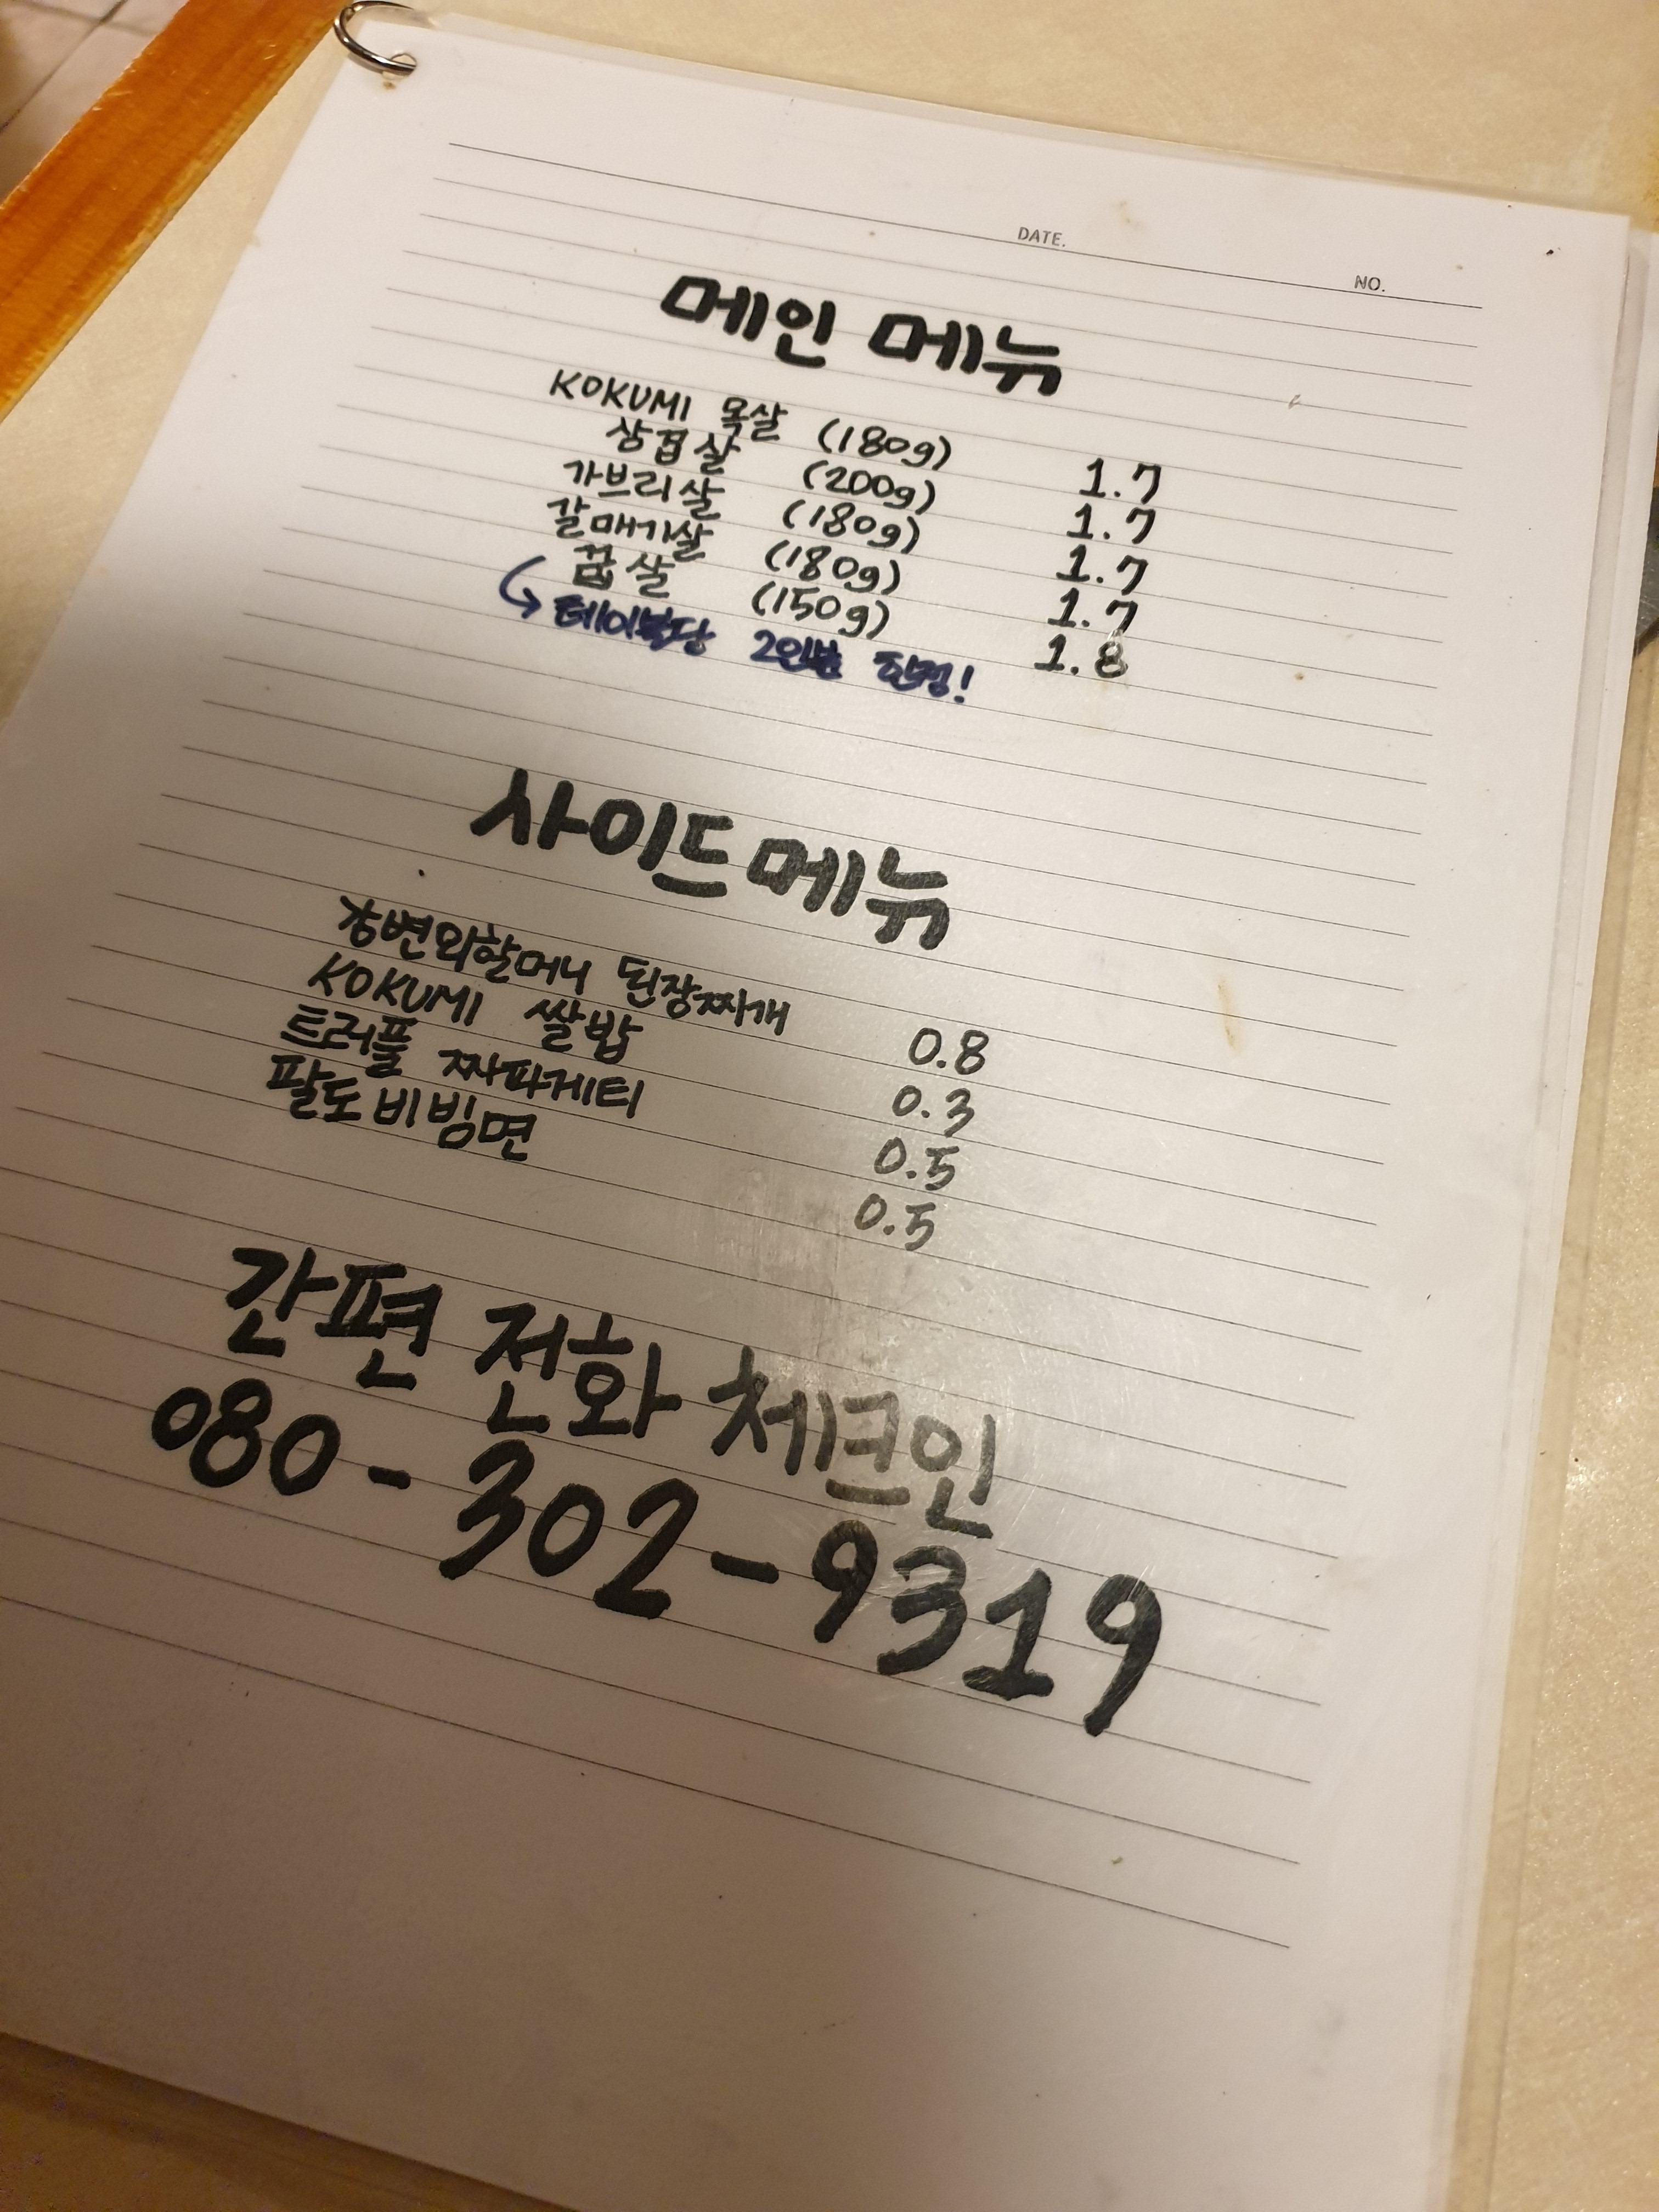 DATE.
NO.
메인 메뉴
KOKUMI 목살 (180g) 1.7
삼겹살 (200g) 1.7
가브리살 (180g) 1.7
갈매기살 (180g) 1.7
꼽살 (150g) 1.8
테이블당 2인분 한정!
사이드메뉴
강변외할머니 된장찌개 0.8
KOKUMI 쌀밥 0.3
트러플 짜파게티 0.5
팔도비빔면 0.5
간편 전화 체크인
080-302-9319